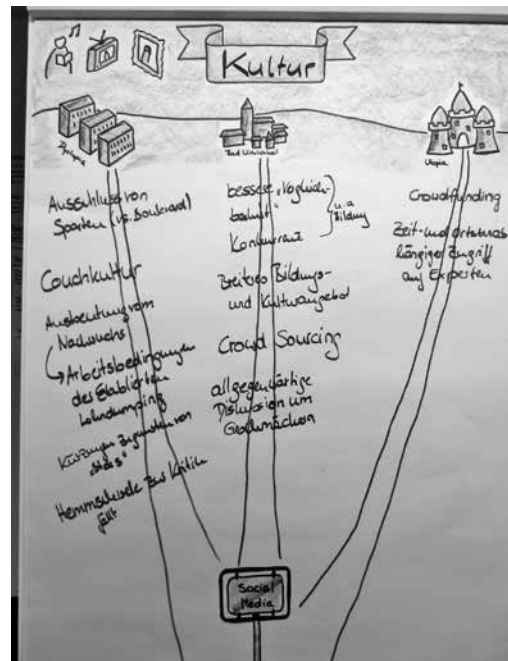 Kultur
Dystopia
Bad Wirklichkeit
Utopia
Ausschluss von
Sparten (vs. Boulevard)
Couchkultur
Ausbeutung vom
Nachwuchs
Arbeitsbedingungen
des Etablierten
Lohndumping
Kürzungen zugunsten von
Hemmschwelle zur Kritik
fällt
bessere "Vergleich-
barkeit"
Konkurrenz
u.a.
Bildung
Breiteres Bildungs-
und Kulturangebot
Crowd Sourcing
allgegenwärtige
Diskussion um
Geschmäcker
Crowdfunding
Zeit- und ortsunab-
hängiger Zugriff
auf Experten
Social
Media